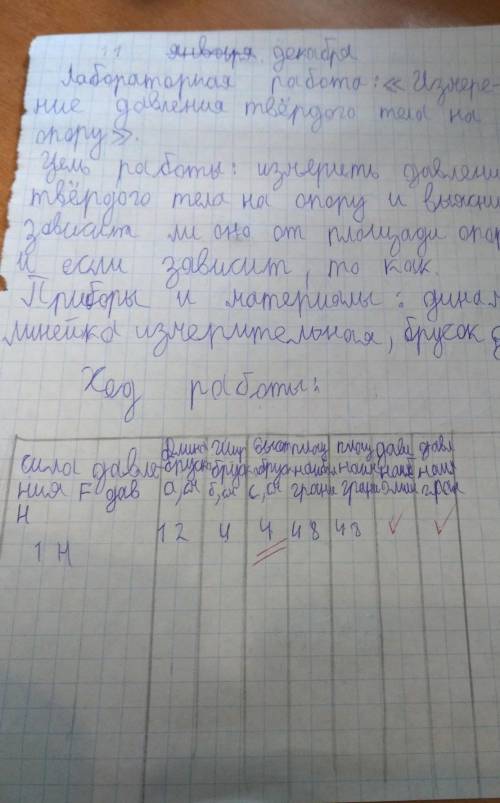 11 января декабря
Лабораторная работа: «Измере-
ние давления твёрдого тела на
опору».
Цель работы: измерить давлени
твёрдого тела на опору и выясни
зависит ли оно от площади опор
И если зависит, то как.
Приборы и материалы: динам
линейка измерительная, брусок д
Ход работы:
сила давле
ния F дав
Н
длина
бруска
а, см
шир
бруск
б, см
высот
бруск
с, см
площ
наибол
грани
площ
наим
грани
давл
наиб
давл
наим
гран
1 Н
12
4
4
48
48